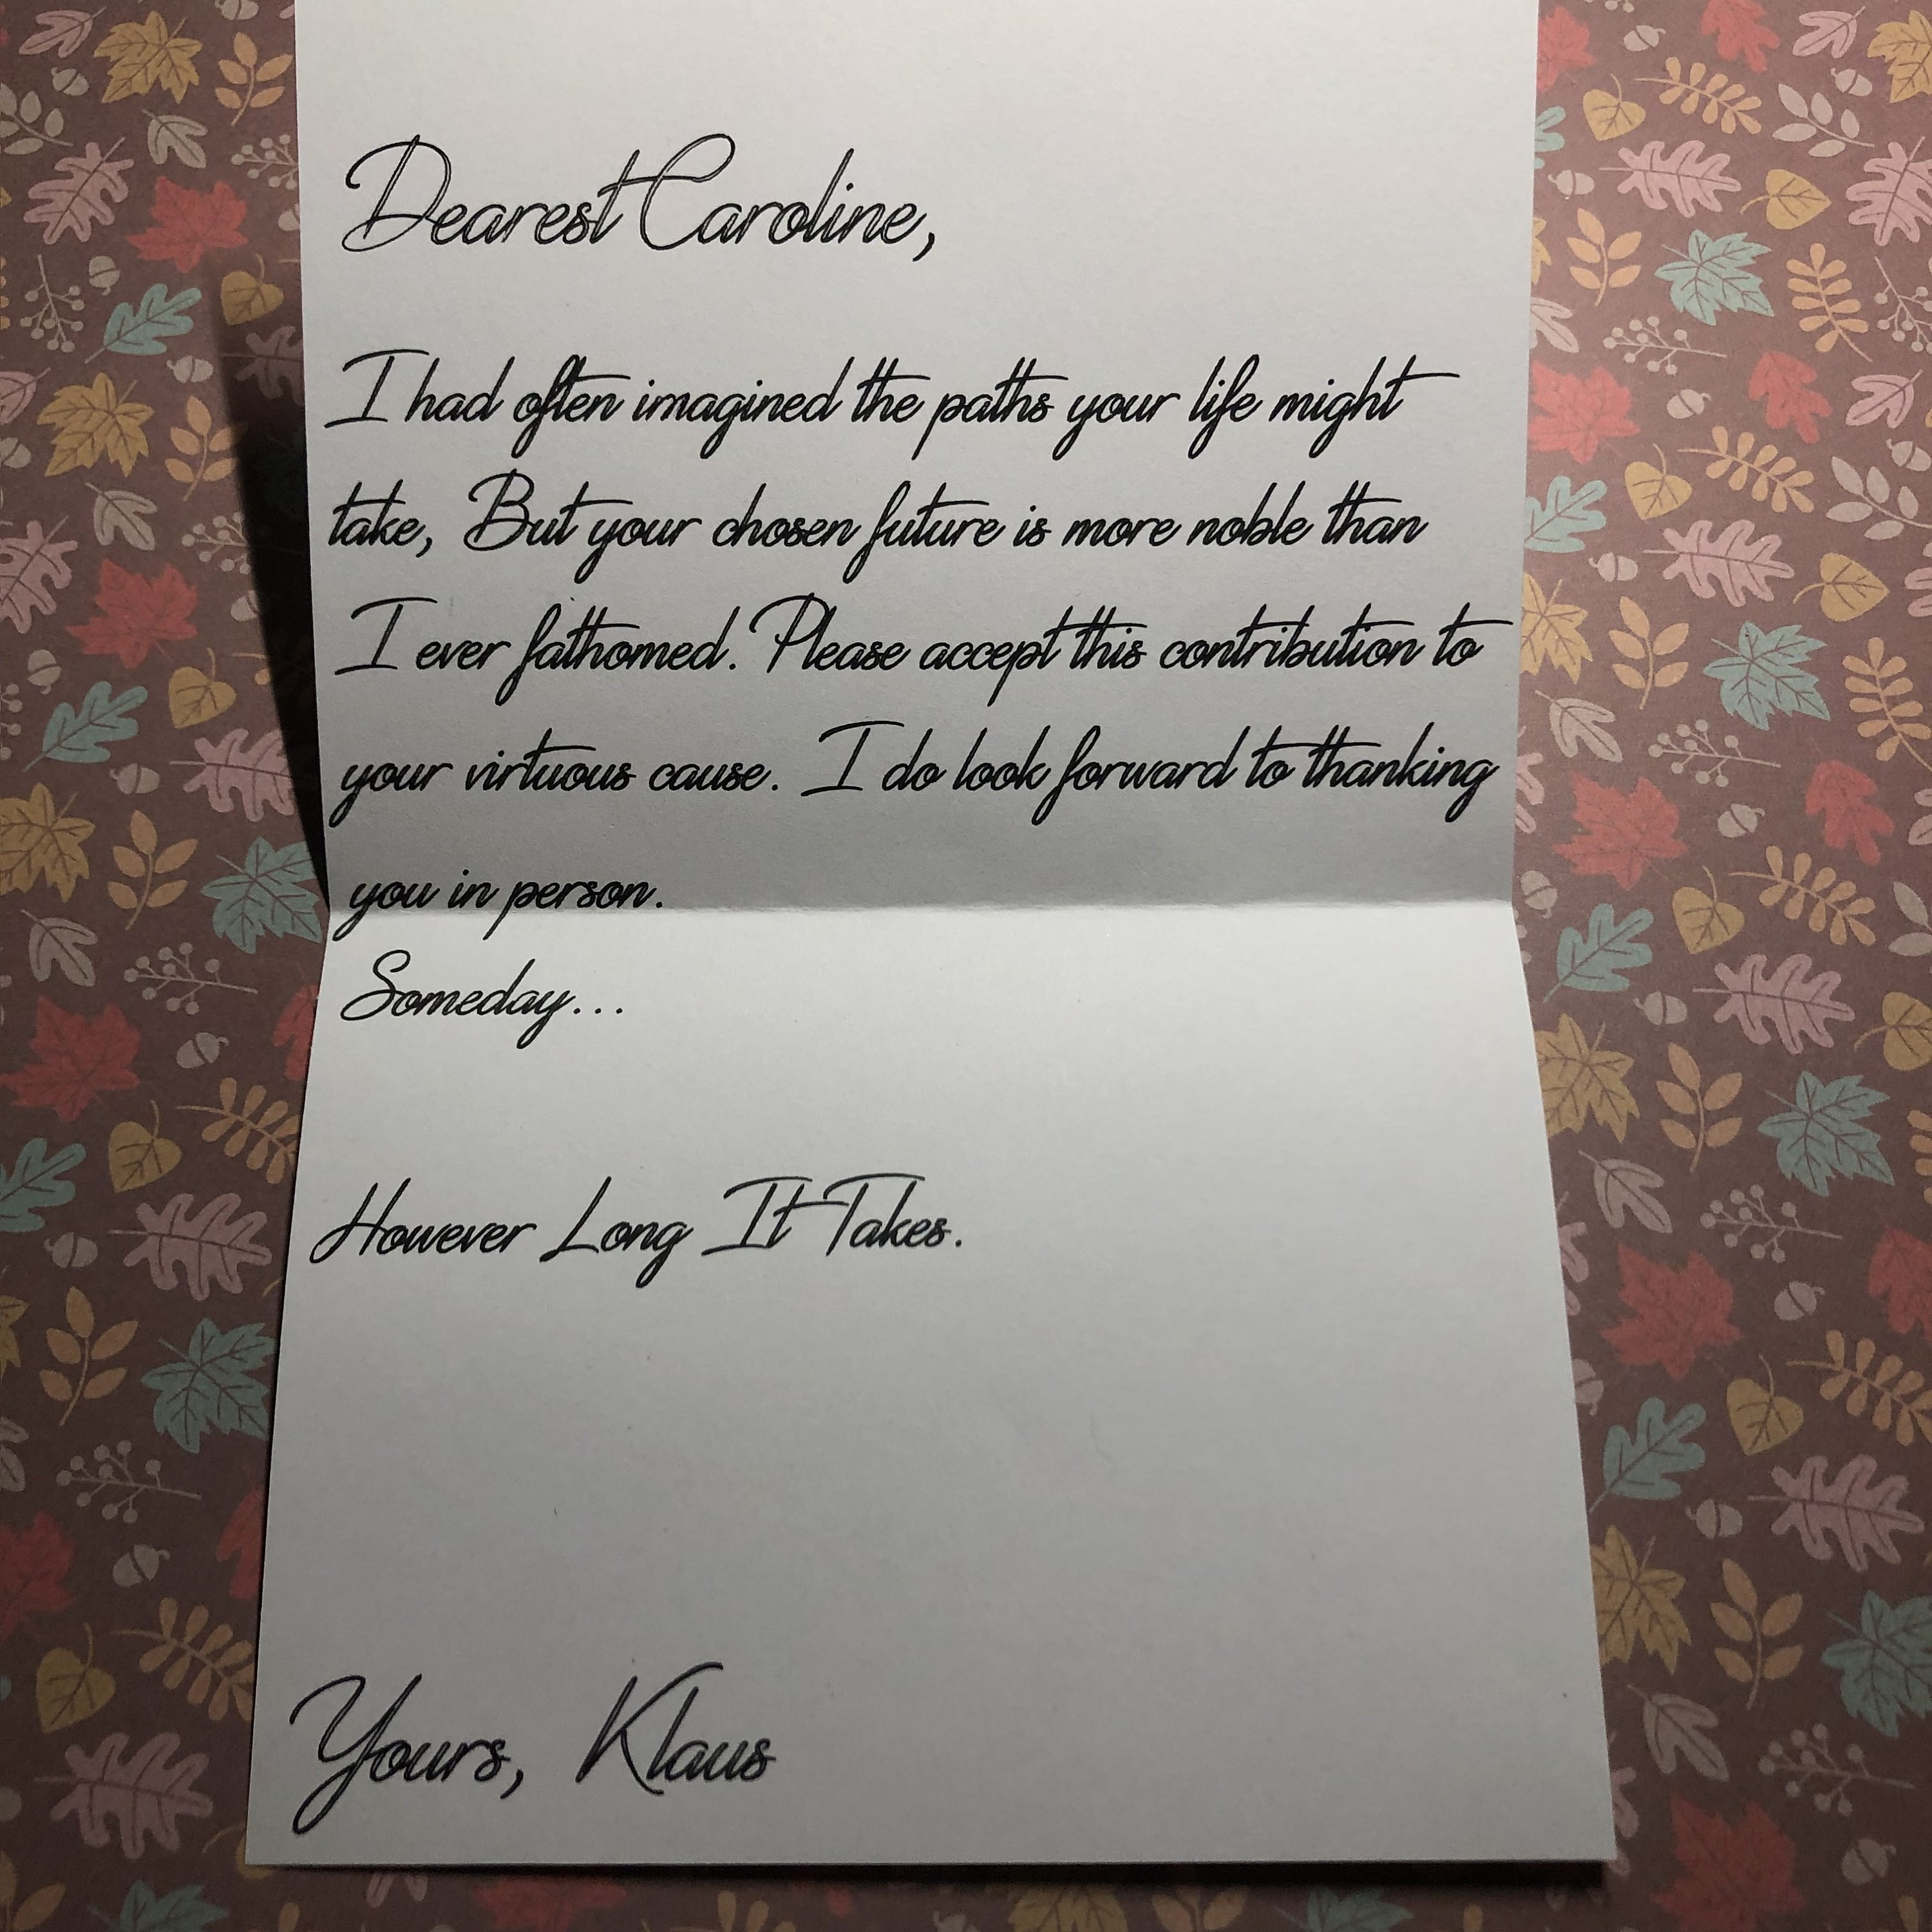 Dearest Caroline,
I had often imagined the paths your life might
take, But your chosen future is more noble than
I ever fathomed. Please accept this contribution to
your virtuous cause. I do look forward to thanking
you in person.
Someday...
However Long It Takes.
Yours, Klaus